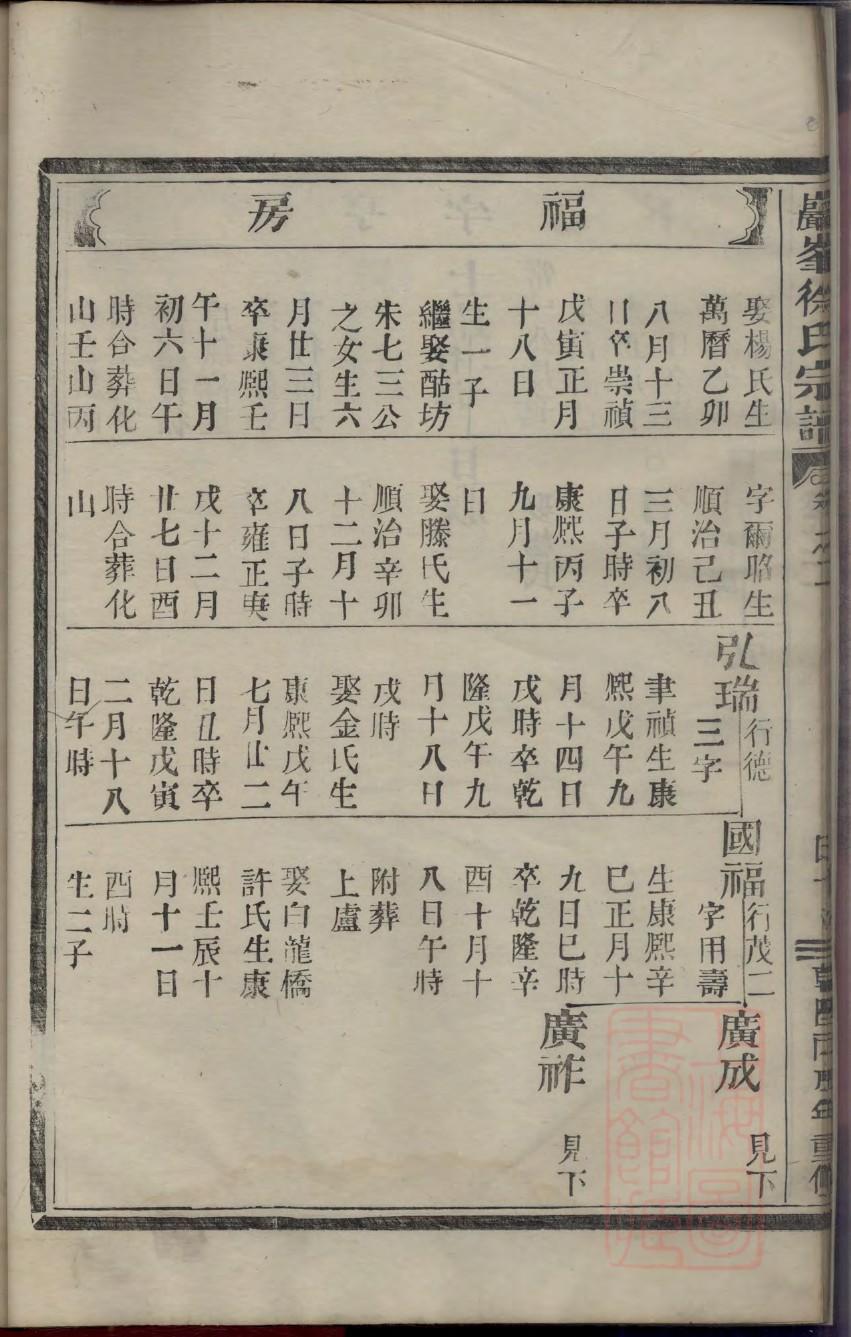 巖峯徐氏宗譜
民國
重修
福房
娶楊氏生
萬曆乙卯
八月十三
日卒崇禎
戊寅正月
十八日
生一子
繼娶酤坊
朱七三公
之女生六
月廿三日
卒康熙壬
午十一月
初六日午
時合葬化
山壬山丙
字爾昭生
順治己丑
三月初八
日子時卒
康熙丙子
九月十一
日
娶滕氏生
順治辛卯
十二月十
八日子時
卒雍正庚
戌十二月
廿七日酉
時合葬化
山
弘瑞行德
三字
聿禎生康
熙戊午九
月十四日
戌時卒乾
隆戊午九
月十八日
戌時
娶金氏生
康熙戊午
七月廿二
日丑時卒
乾隆戊寅
二月十八
日午時
國福行茂二
字用壽
生康熙辛
巳正月十
九日巳時
卒乾隆辛
酉十月十
八日午時
附葬
上盧
娶白龍橋
許氏生康
熙壬辰十
月十一日
酉時
生二子
廣成
見下
廣祚
見下